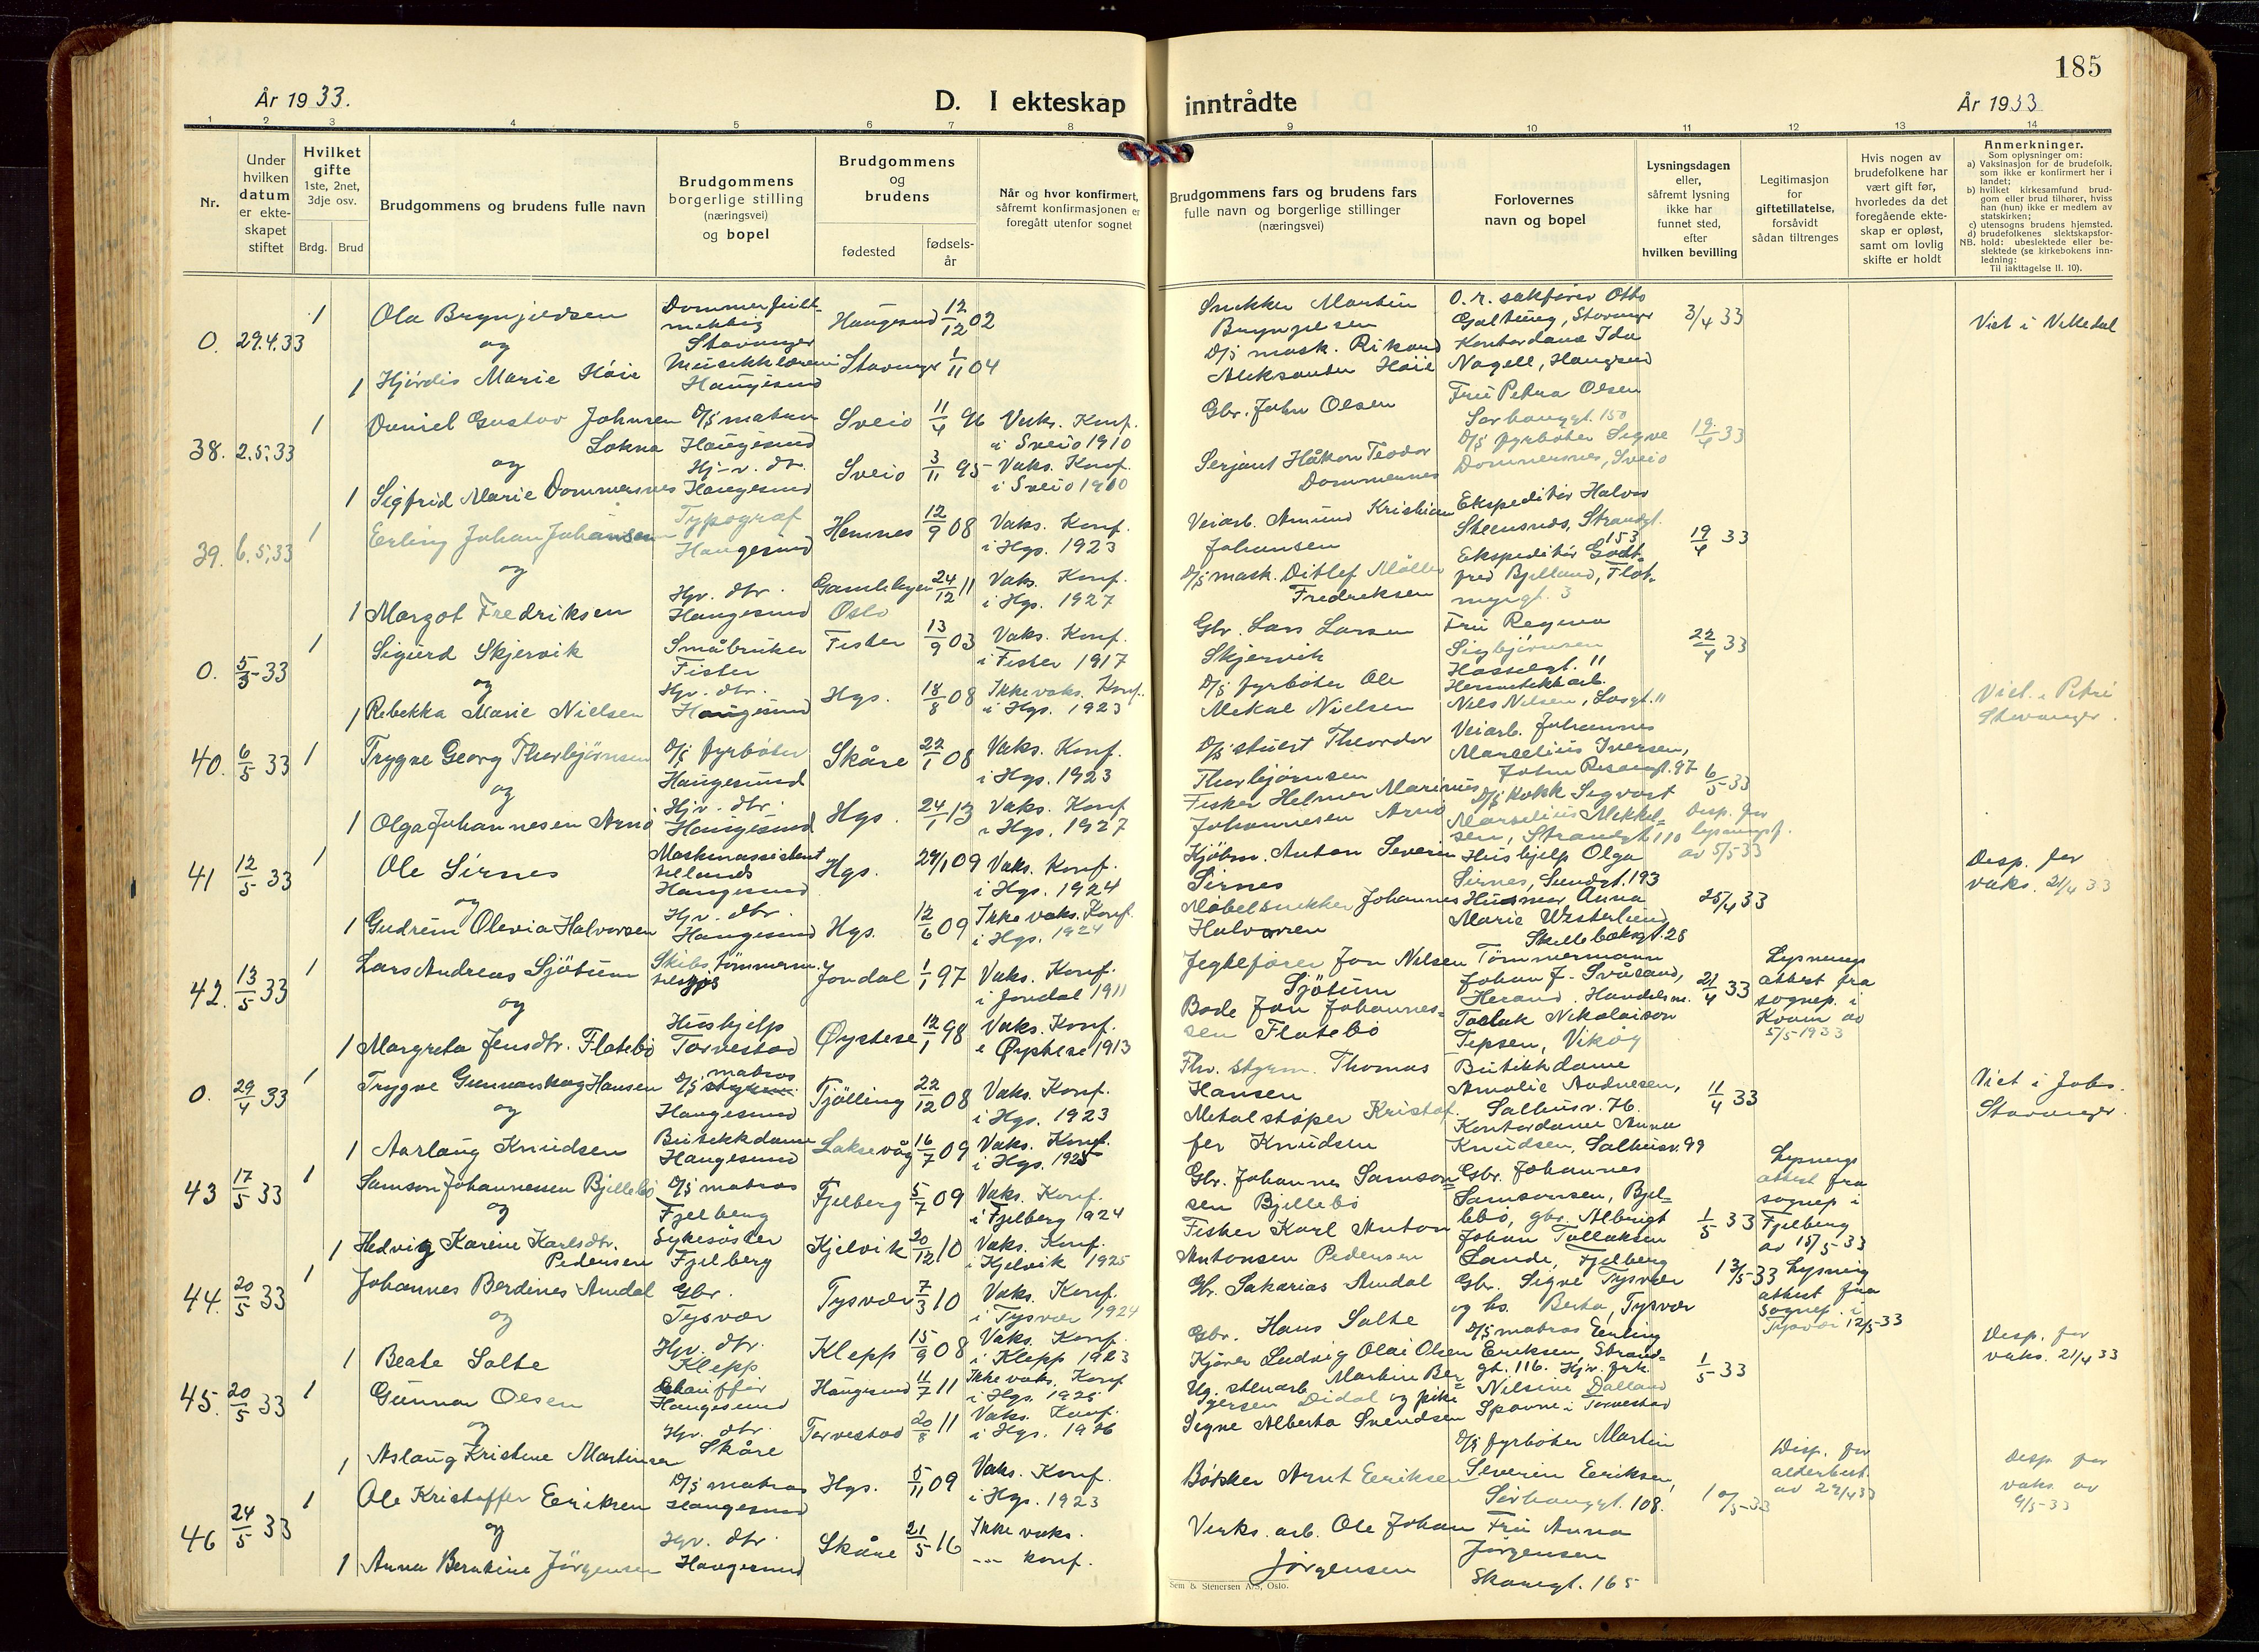 185
År 1933.
D. I ekteskap inntrådte
År 1933
1 2 3 4 5 6 7 8 9 10 11 12 13 14
Nr.
Under hvilken datum er ekte-skapet stiftet
Hvilket gifte 1ste, 2net, 3dje osv.
Brdg. Brud
Brudgommens og brudens fulle navn
Brudgommens borgerlige stilling (næringsvei) og bopel
Brudgommens og brudens
fødested
fødsels-år
Når og hvor konfirmert, såfremt konfirmasjonen er foregått utenfor sognet
Brudgommens fars og brudens fars fulle navn og borgerlige stillinger (næringsvei)
Forlovernes navn og bopel
Lysningsdagen eller, såfremt lysning ikke har funnet sted, efter hvilken bevilling
Legitimasjon for giftetillatelse, forsåvidt sådan tiltrenges
Hvis nogen av brudefolkene har vært gift før, hvorledes da det foregående ekte-skap er opløst, samt om lovlig skifte er holdt
Anmerkninger.
Som oplysninger om:
a) Vaksinasjon for de brudefolk, som ikke er konfirmert her i landet;
b) hvilket kirkesamfund brud-gom eller brud tilhører, hviss han (hun) ikke er medlem av statskirken;
c) utensogns brudens hjemsted.
d) brudefolkenes slektskapsfor-
NB. hold: ubeslektede eller be-slektede (se kirkebokens inn-ledning:
Til iakttagelse II. 10).
0. 29.4.33 1 Ola Brynjelsen
Stavanger
Haugesund 12/12 02
Snekker Martin Brynjelsen
O.r. sakfører Otto Galtung, Stavanger
3/4 33
Viet i Vikedal
og
1 Hjørdis Marie Høie
Musikklærerin Haugesund
Stavanger 1/11 04
D/S mask. Rikard Aleksander Høie
Kontordame Ida Nagell, Haugesund
38. 2.5.33 1 Daniel Gustav Johnsen Lokna
D/S matros Haugesund
Sveio 11/4 96
Vaks. Konf. i Sveio 1910
Gbr. John Olsen
Fru Petra Olsen Sørhauggt. 150
19/4 33
og
1 Sigfrid Marie Dommersnes
Hj.v. dtr. Haugesund
Sveio 3/11 95
Vaks. Konf. i Sveio 1910
Serjant Håkon Teodor Dommersnes
D/S fyrbøter Sigve Dommersnes, Sveio
39. 6.5.33 1 Erling Johan Johansen
Typograf Haugesund
Hemnes 12/9 08
Vaks. Konf. i Hgs. 1923
Veiarb. Amund Kristian Johansen
Ekspeditør Halvor Steensnæs, Strandgt. 153
19/4 33
og
1 Margot Fredriksen
Hjv. dtr. Haugesund
Gamlebyen Oslo 24/12 11
Vaks. Konf. i Hgs. 1927
D/S mask. Ditlef Møller Fredriksen
Ekspeditør Godtfred Bjelland, Fløtmyrgt. 3
0. 5/5 33 1 Sigurd Skjervik
Småbruker Fister
Fister 13/9 03
Vaks. Konf. i Fister 1917
Gbr. Lars Larsen Skjervik
Fru Regina Sigbjørnsen Hasselgt. 11
22/4 33
Viet i Petri Stavanger.
og
1 Rebekka Marie Nielsen
Hjv. dtr. Haugesund
Hgs. 18/8 08
Ikke vaks. Konf. i Hgs. 1923
D/S fyrbøter Ole Mekal Nielsen
Hermetikkarb. Nils Nilsen, Losgt. 11
40. 6/5 33 1 Trygve Georg Thorbjørnsen
D/S fyrbøter Haugesund
Skåre 22/1 08
Vaks. Konf. i Hgs. 1923
D/S stuert Theordor Thorbjørnsen
Veiarb. Johannes Marcelius Iversen,
6/5 33
og
1 Olga Johannesen Arnø
Hjv. dtr. Haugesund
Hgs. 24/1 13
Vaks. Konf. i Hgs. 1927
Fisker Helmer Marinus Johannesen Arnø
D/S kokk Sigvart Marselius Mikkelsen, Strandgt 110
Desp. for lysningsf. av 5/5 33
41 12/5 33 1 Ole Sirnes
Maskinassistent Haugesund
Hgs. 24/1 09
Vaks. Konf. i Hgs. 1924
Kjøbm. Anton Severin Sirnes
Hushjelp Olga Sirnes, Sundgt. 193
25/4 33
Desp. for vaks. 21/4 33
og
1 Gudrun Olevia Halvorsen
Hjv. dtr. Haugesund
Hgs. 12/6 09
Ikke vaks. Konf. i Hgs. 1924
Møbelsnekker Johannes Halvorsen
Husmor Anna Marie Westerlund Skillebæksgt. 28
42. 13/5 33 1 Lars Andreas Sjötum
Skibstømmerm.
Jondal 1/1 97
Vaks. Konf. i Jondal 1911
Jon Nilsen Sjøtun
Tømmermann Johan J. Svåsand, Herand.
21/4 33
Lysnings attest fra sognep. i Kvam av 5/5-1933
og
1 Margreta Jensdtr. Flatebø
Hushjelp Torvestad
Øystese 12/1 98
Vaks. Konf. i Øystese 1913
Jon Johannessen Flatebø
Handelsm. Nikolaison Tepsen, Vikøy
0. 29/4 33 1 Trygve Gunnarskog Hansen
D/S matros Haugesund
Tjølling 22/12 08
Vaks. Konf. i Hgs. 1923
Fhv. styrm. Thomas Hansen
Butikkdame Amalie Andresen, Salhusv. 76.
11/4 33
Viet i Johs. Stavanger.
og
1 Aarlaug Knudsen
Butikkdame Haugesund
Laksevåg 16/7 09
Vaks. Konf. i Hgs. 1925
Metalstøper Kristoffer Knudsen
Kontordame Anna Knudsen, Salhusv. 99
43 17/5 33 1 Samson Johannessen Bjellebø
D/S matros Fjelberg
Fjelberg 5/7 09
Vaks. Konf. i Fjelberg 1924
Gbr. Johannes Samsonsen Bjellebø
Gbr. Johannes Samsonsen, Bjellebø,
1/5 33
Lysnings attest fra sognep i Fjelberg av 15/5-33
og
1 Hedvig Karine Karlsdtr. Pedersen
Sykesøster Fjelberg
Kjelvik 20/12 10
Vaks. Konf. i Kjelvik 1925
Fisker Karl Anton Antonsen Pedersen
gbr. Albrigt Johan Tollaksen Lande, Fjelberg
44. 20/5 33 1 Johannes Berdines Amdal
Gbr. Tysvær
Tysvær 7/3 10
Vaks. Konf. i Tysvær 1924
Gbr. Sakarias Amdal
Gbr. Sigve Tysvær og hs. Berta, Tysvær
13/5-33
Lysning attest fra sognep. i Tysvær 12/5-33
og
1 Beate Salte
Hjv. dtr. Klepp
Klepp 15/9 08
Vaks. Konf. i Klepp 1923
Gbr. Hans Salte
45. 20/5 33 1 Gunnar Olsen
Chauffør Haugesund
Haugesund 11/7 11
Ikke vaks. Konf i Hgs. 1925
Kjører Ludvig Olai Olsen
D/S matros Erling Eriksen, Strandgt. 116.
1/5 33
Desp. for vaks. 21/4 33
og
1 Aslaug Kristine Martinsen
Hjv. dtr. Skåre
Torvestad 20/8 11
Vaks. Konf. i Hgs. 1926
Martin Didal og pike Signe Alberta Svendsen
Hjv. frk. Nilsine Dalland Spanne i Torvestad
46 24/5 33 1 Ole Kristoffer Eriksen
D/S matros Haugesund
Hgs. 5/11 09
Vaks. Konf. i Hgs. 1923
Bøkker Arnt Eriksen
D/S fyrbøter Martin Severin Eriksen, Sørhauggt. 108.
10/5-33
Disp. for alderbest. av 29/4 33
Desp for vaks. av 9/5-33
og
1 Anna Berntine Jörgensen
Hjv. dtr Haugesund
Skåre 21/5 16
Ikke vaks. --- konf.
Verks. arb. Ole Johan Jørgensen
Fru Anna Jørgensen Skåregt. 165
Sem & Stenersen A/S, Oslo.